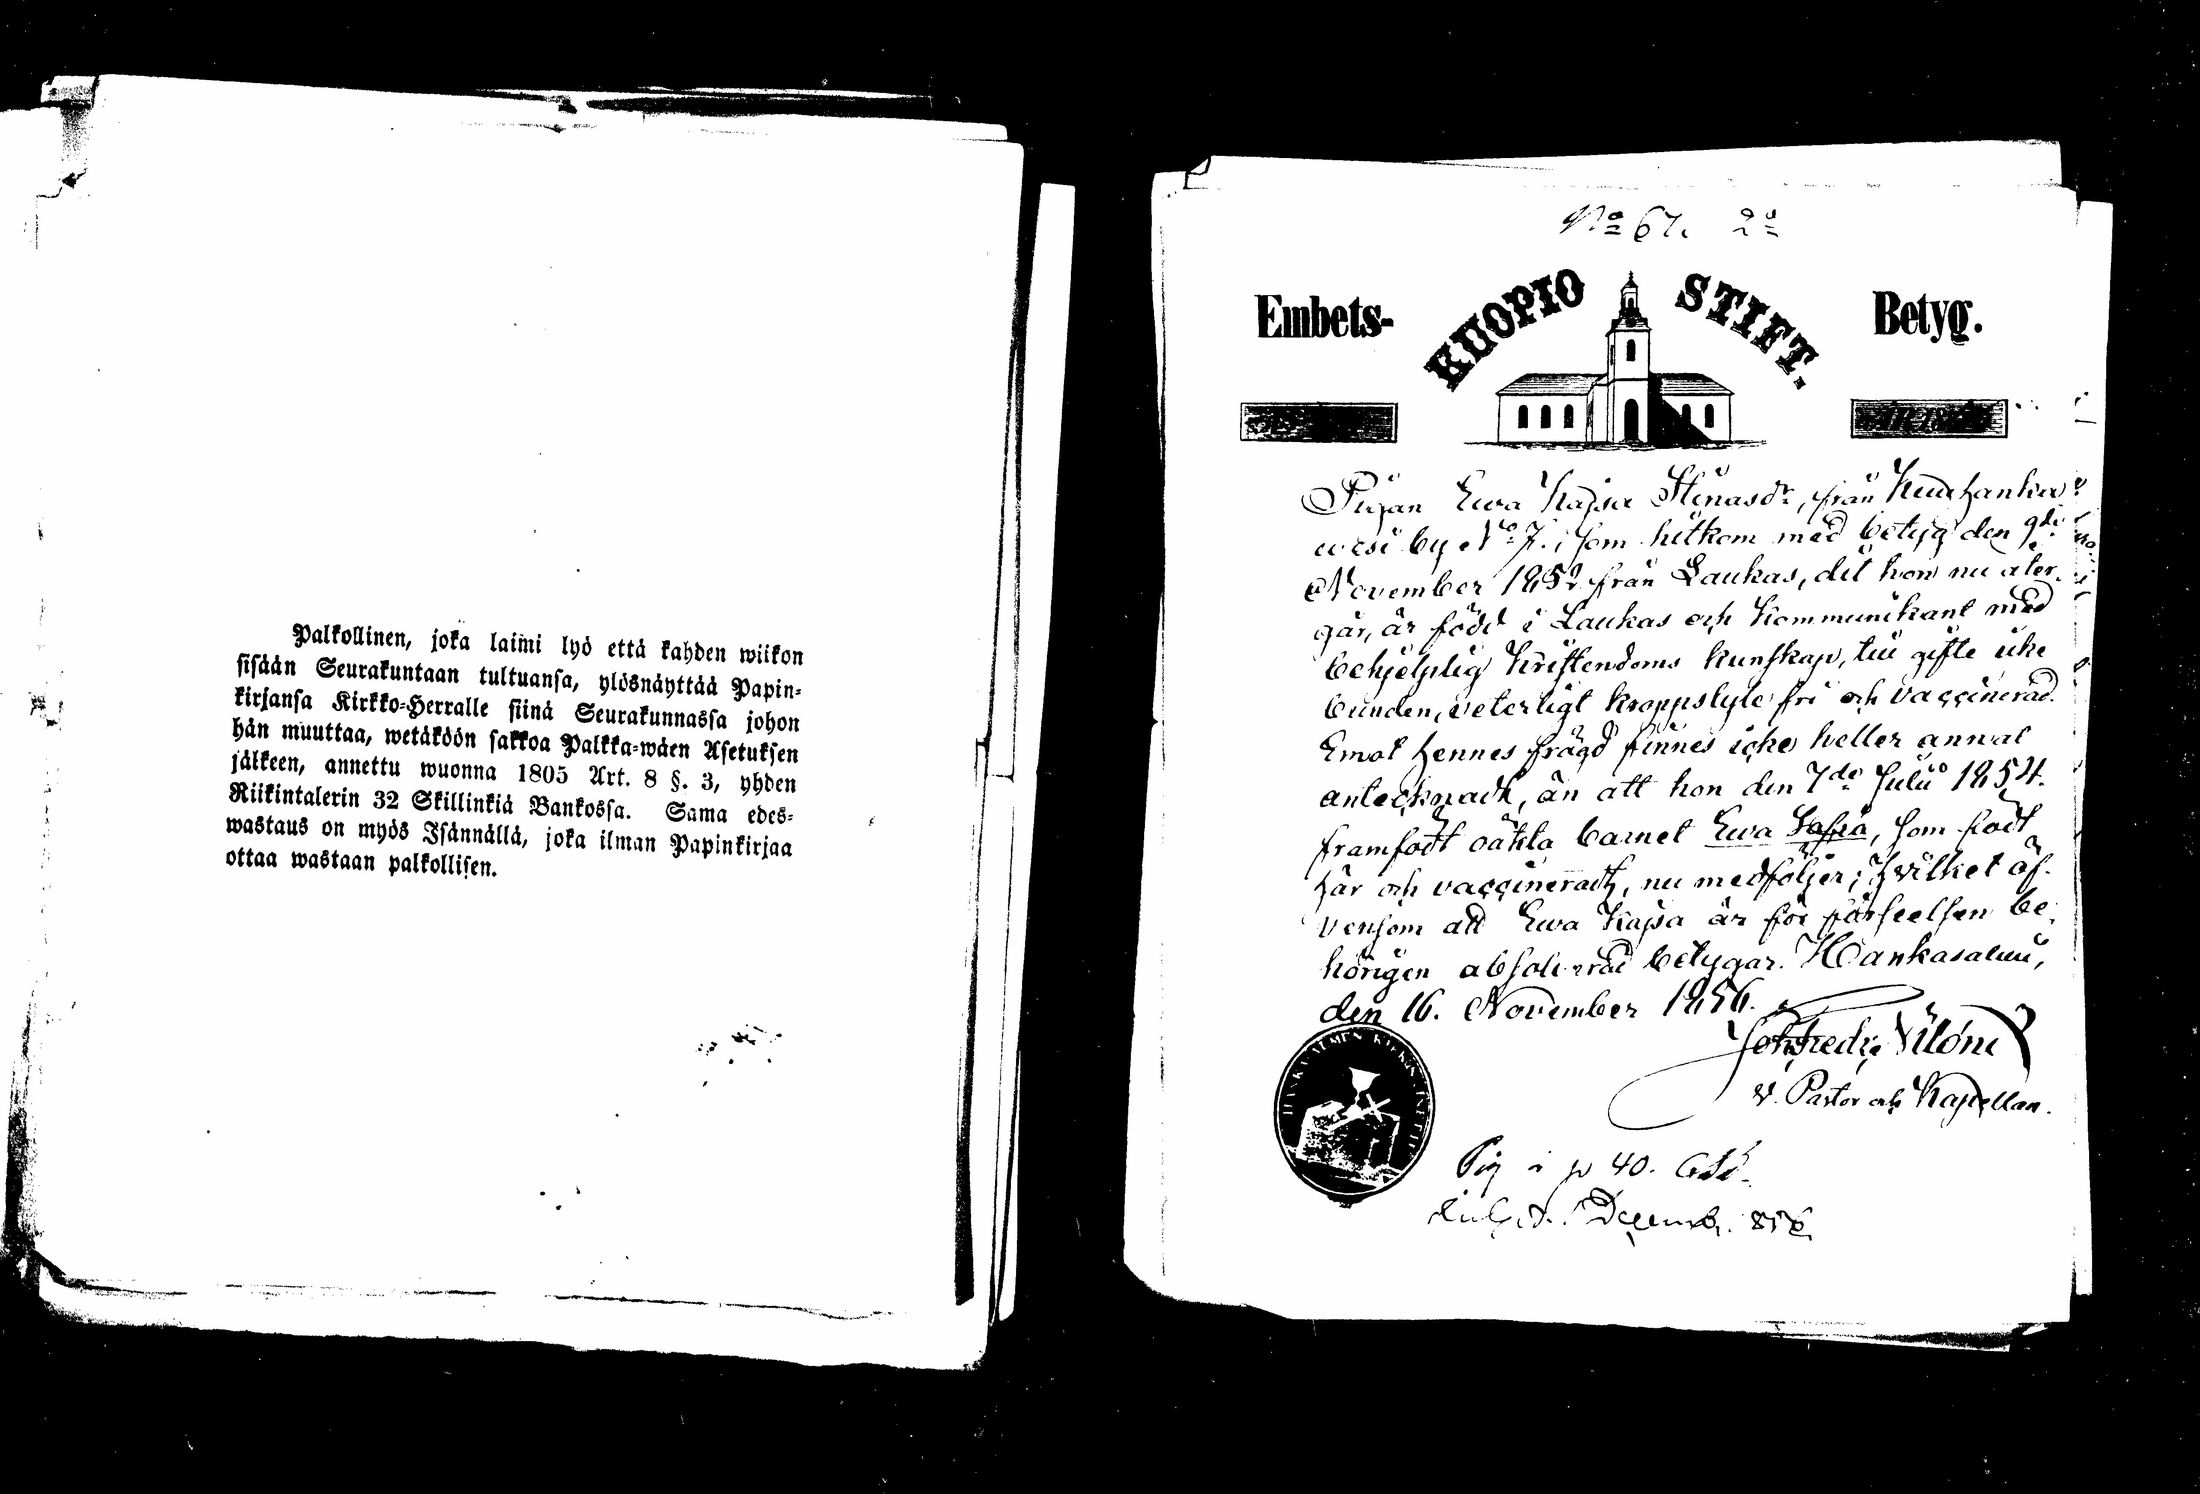 Palkollinen, joka laimi lyö että kahden wiikon
sisään Seurakuntaan tultuansa, ylösnäyttää Papin-
kirjansa Kirkko-Herralle siinä Seurakunnassa johon
hän muuttaa, wetäköön sakkoa Palkka-wäen Asetuksen
jälkeen, annettu wuonna 1805 Art. 8 §. 3, yhden
Riikintalerin 32 Skillinkiä Bankossa. Sama edes-
wastaus on myös Isännällä, joka ilman Papinkirjaa
ottaa wastaan palkollisen.
No 67.
Embets- KUOPIO STIFT. Betyg.
Pigan Ewa Kajsa Stinasdr, från
wesi by No 7. som hitkom med betyg den 9de
November 1852 från Laukas, dit hon nu åter-
går, är född i Laukas och Kommunikant med
behjelplig Kristendoms kunskap, till gifte icke
bunden, veterligt kroppslyte fri och vaccinerad.
Emot hennes frägd finnes icke heller annat
antecknadt, än att hon den 7de Julii 1854.
framfödt oäkta barnet Ewa Sofia, som född
här och vaccinerad, nu medföljer; hvilket äf-
vensom att Ewa Kajsa är för förseelsen be-
hörigen absolverad betygar. Hankasalmi,
den 16. November 1856.
v. Pastor och Kapellan.
HANKASALMEN KIRKON
Pig i p 40.